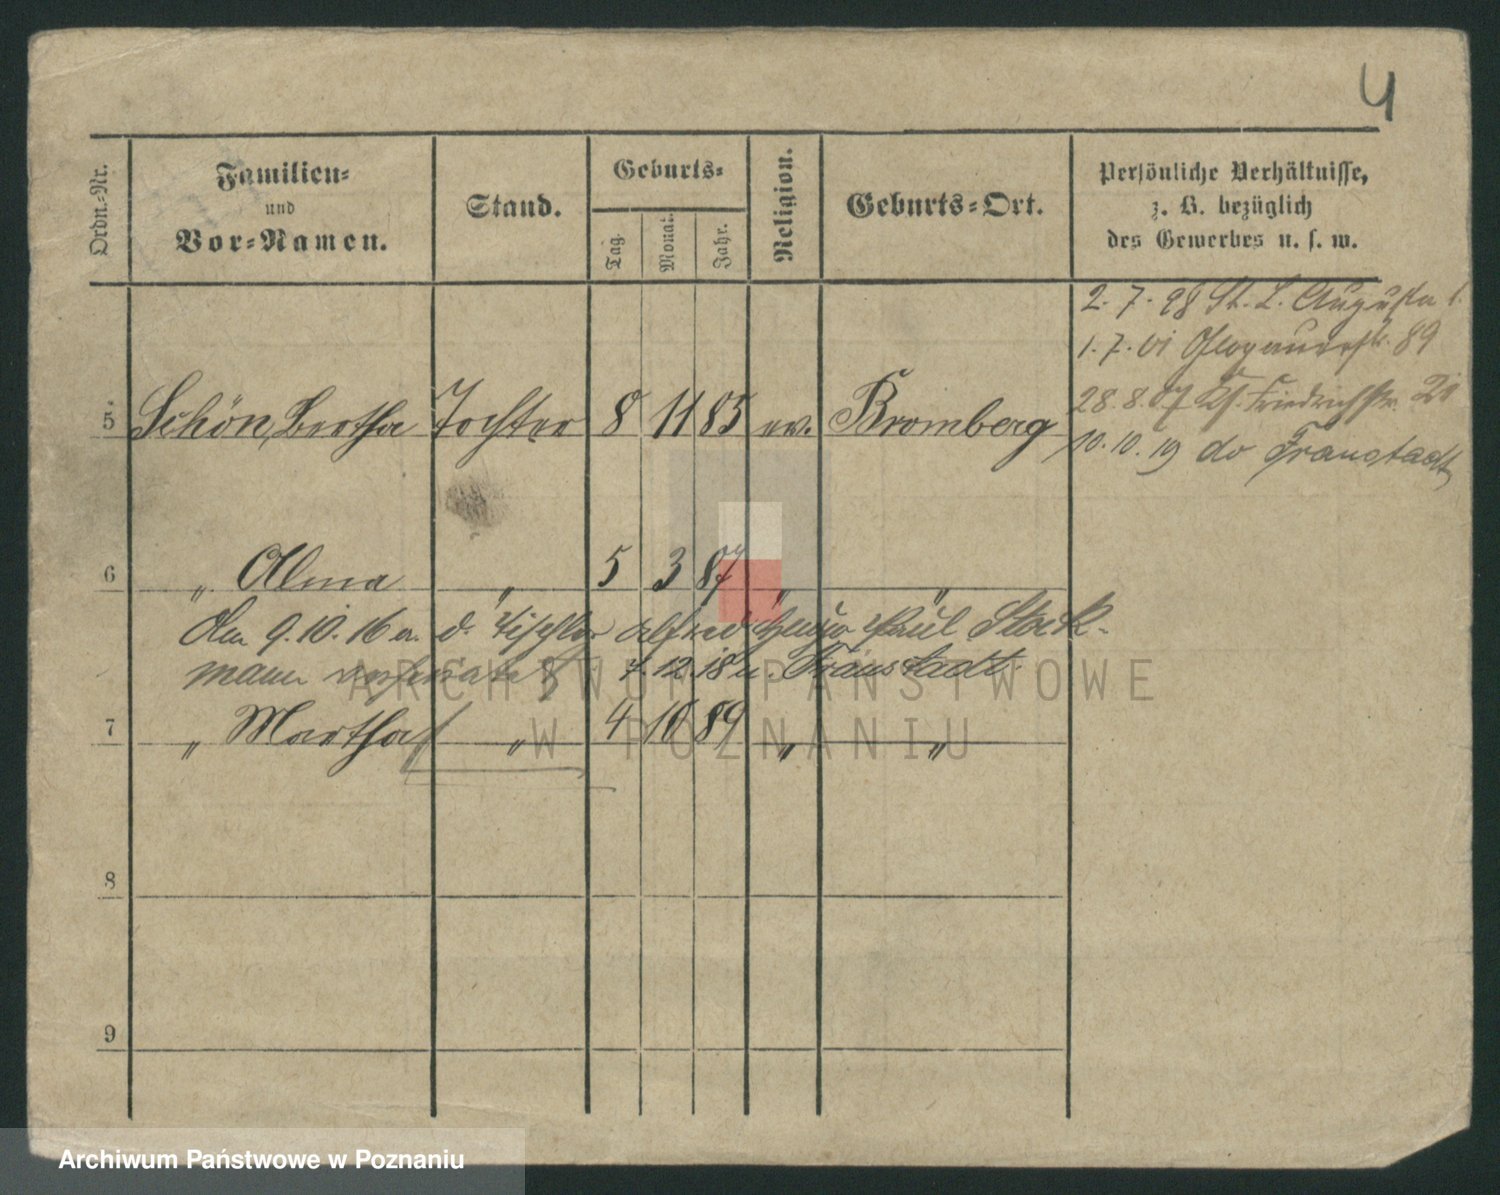 4
Ordn.-Nr.
Familien-
und
Vor-Namen.
Stand.
Geburts-
Tag.
Monat.
Jahr.
Religion.
Geburts-Ort.
Persönliche Verhältnisse,
z. B. bezüglich
des Gewerbes u. s. w.
2. 7. 98 St. L. Augusta
1. 7. 01 Glogauerstr. 89
28. 8. 07 Friedrichstr.
10. 10. 19 do Fraustadt
5 Schön, Bertha Tochter 8 11 85 ev. Bromberg
6 „ Alma „ 5 3 87 „ „
Am 9. 10. 16 m. d. Tischler Alfred Hugo Paul Stock-
mann verheiratet 7. 12. 18 n. Fraustadt
7 „ Martha „ 4 10 89 „ „
8
9
ARCHIWUM PAŃSTWOWE
W POZNANIU
Archiwum Państwowe w Poznaniu